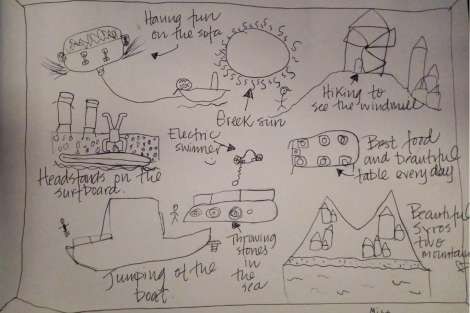 Having fun
on the sofa
Greek sun
Hiking to
see the windmill
Headstands on the
surfboard.
Electric
swimmer
Best food
and beautiful
table every day
Jumping of the
boat
Throwing
stones
in
the
sea
Beautiful
Syros
two
mountains